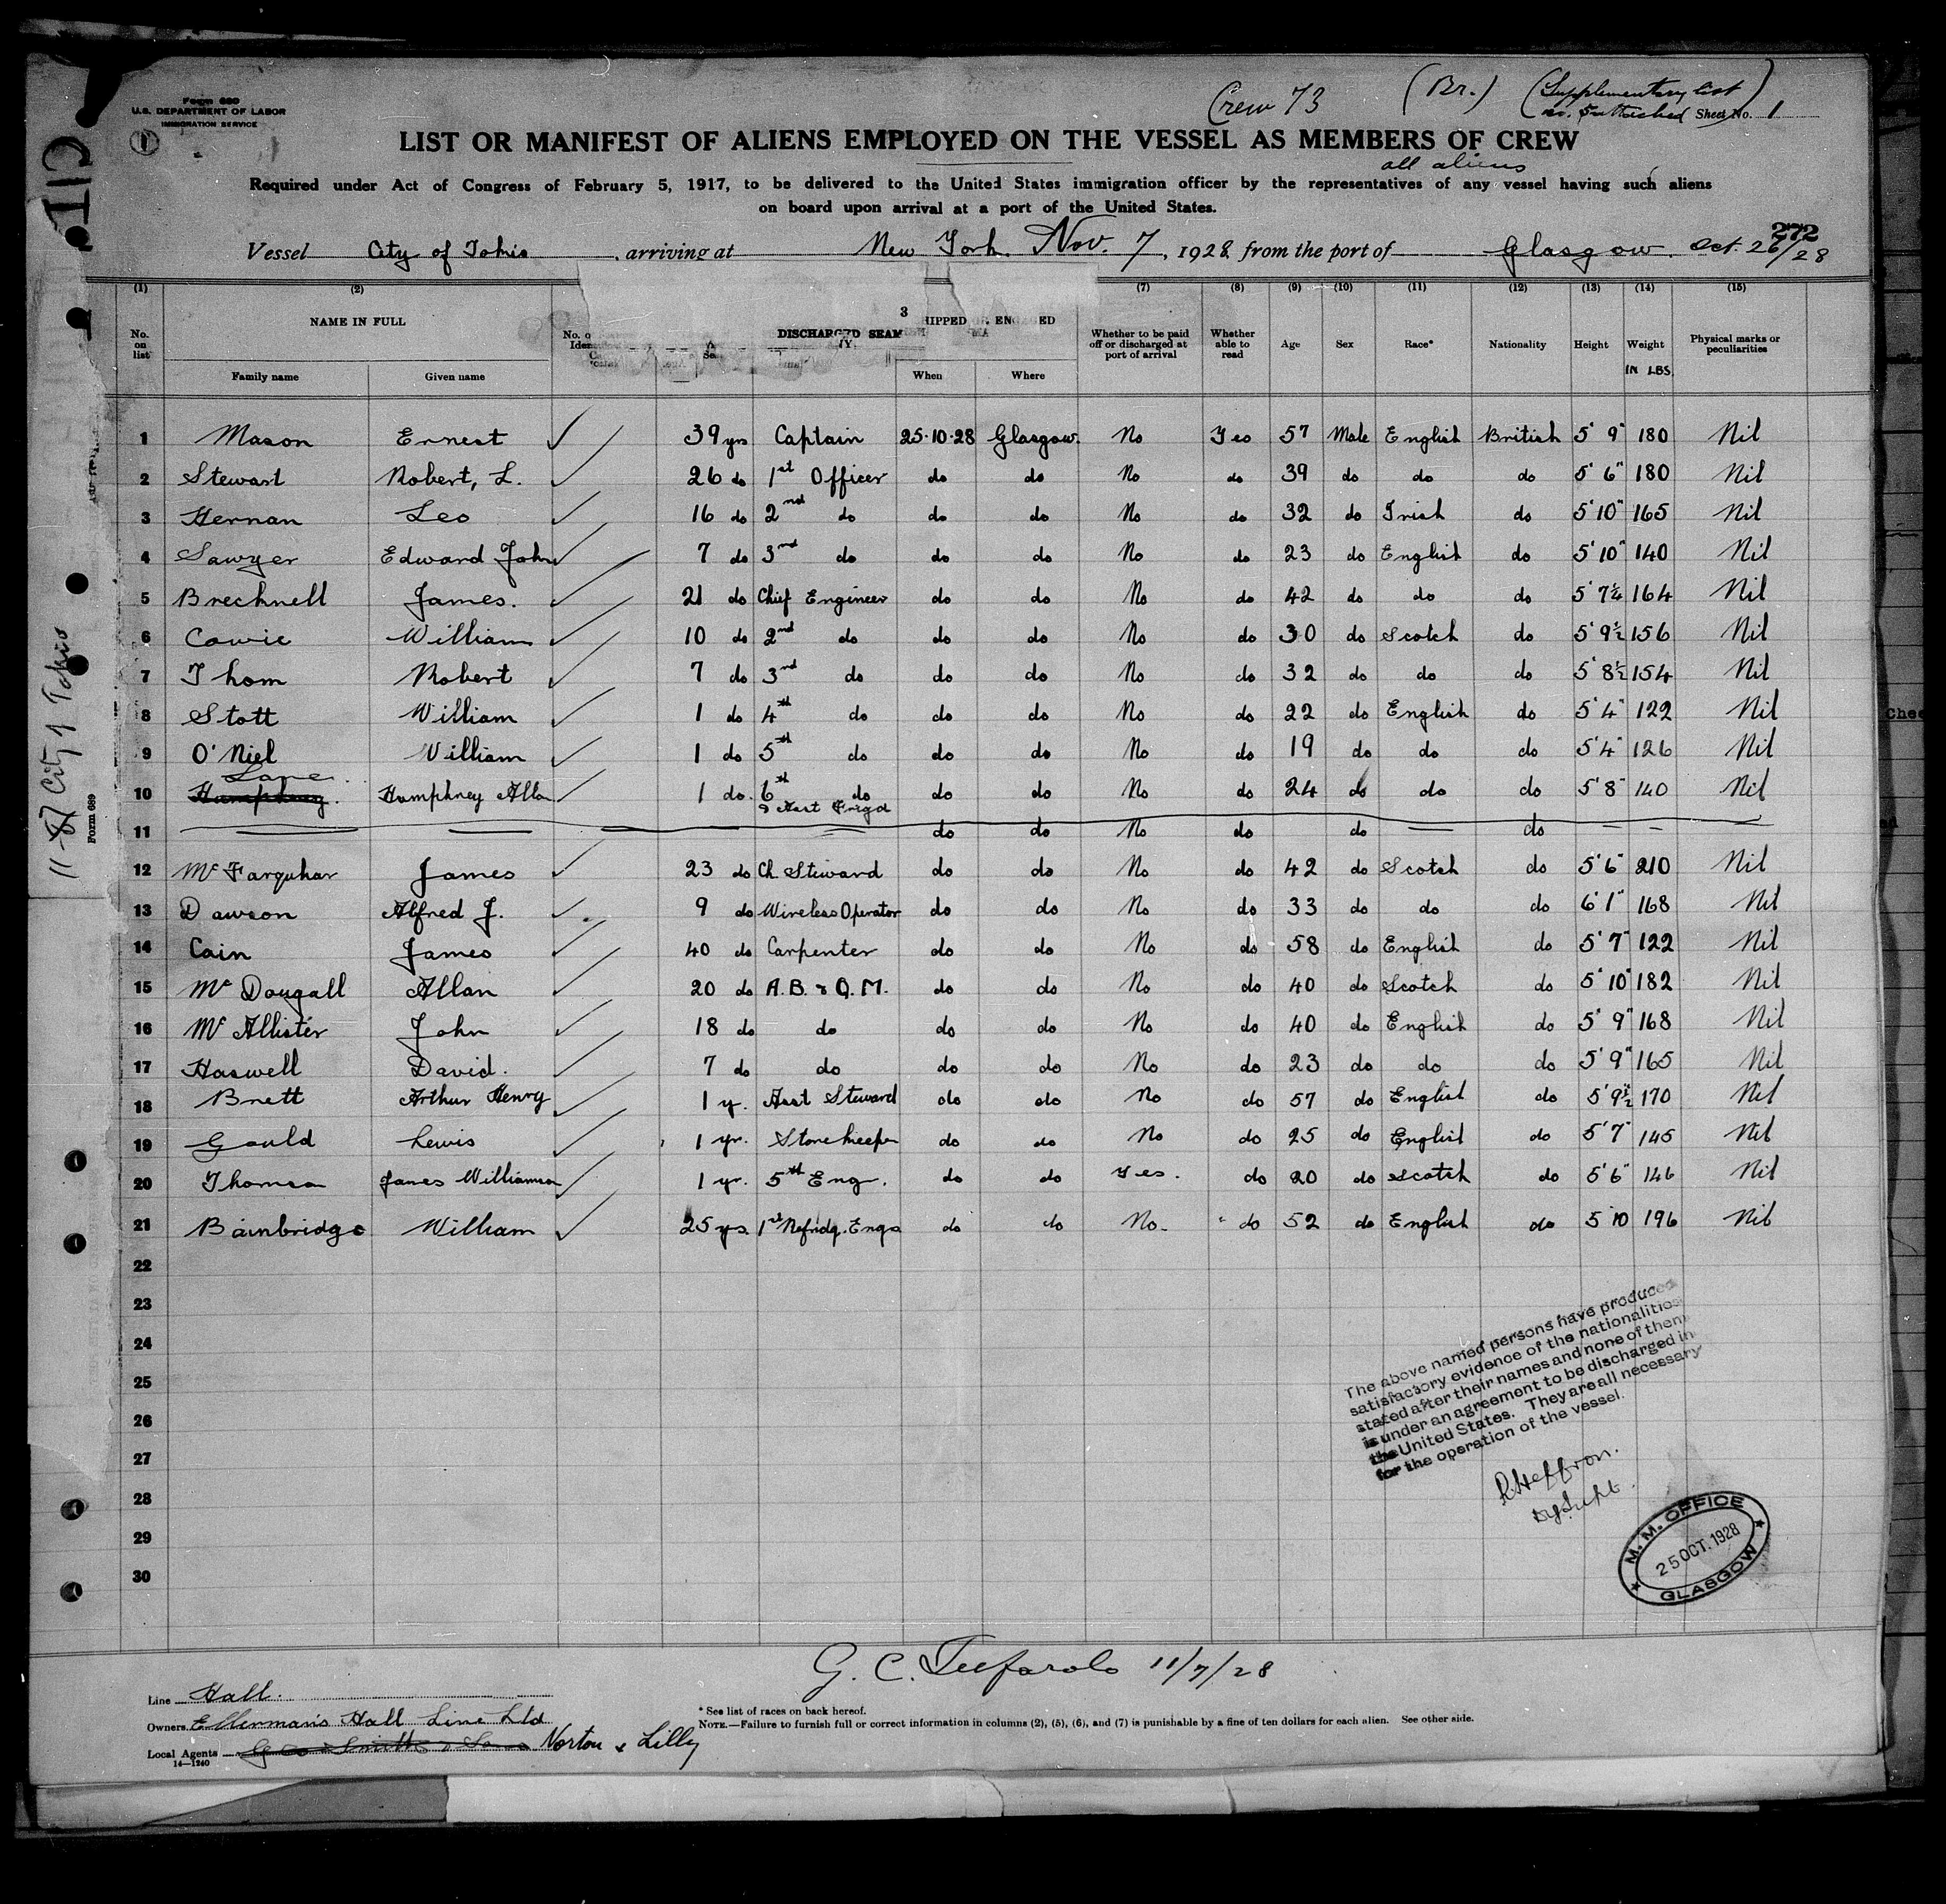 Form 680
U.S. DEPARTMENT OF LABOR
IMMIGRATION SERVICE
1
Crew 73 (Br.) (Supplementary list
attached) Sheet No. 1
LIST OR MANIFEST OF ALIENS EMPLOYED ON THE VESSEL AS MEMBERS OF CREW
all aliens
Required under Act of Congress of February 5, 1917, to be delivered to the United States immigration officer by the representatives of any vessel having such aliens
on board upon arrival at a port of the United States.
272
Vessel City of Tokio, arriving at New York. Nov. 7, 1928, from the port of Glasgow. Oct. 26/28
(1) (2) (7) (8) (9) (10) (11) (12) (13) (14) (15)
No. on list NAME IN FULL DISCHARGED SEAM 3 HIPPED ENGAGED Whether to be paid off or discharged at port of arrival Whether able to read Age Sex Race* Nationality Height Weight IN LBS. Physical marks or peculiarities
Family name Given name When Where
1 Mason Ernest 39 yrs Captain 25·10·28 Glasgow. No Yes 57 Male English British 5' 9" 180 Nil
2 Stewart Robert, L. 26 do 1st Officer do do No do 39 do do do 5' 6" 180 Nil
3 Hernan Leo 16 do 2nd do do do No do 32 do Irish do 5' 10" 165 Nil
4 Sawyer Edward John 7 do 3rd do do do No do 23 do English do 5' 10" 140 Nil
5 Brecknell James. 21 do Chief Engineer do do No do 42 do do do 5' 7¼ 164 Nil
6 Cowie William 10 do 2nd do do do No do 30 do Scotch do 5' 9½ 156 Nil
7 Thom Robert 7 do 3rd do do do No do 32 do do do 5' 8½ 154 Nil
8 Stott William 1 do 4th do do do No do 22 do English do 5' 4" 122 Nil
9 O'Niel William 1 do 5th do do do No do 19 do do do 5' 4" 126 Nil
Lane
10 Humphrey. Humphney Allan 1 do. 6th do do do No do 24 do do do 5' 8" 140 Nil
11 do do No do do do
12 McFarquhar James 23 do Ch. Steward do do No do 42 do Scotch do 5' 6" 210 Nil
13 Dawson Alfred J. 9 do Wireless Operator do do No do 33 do do do 6' 1" 168 Nil
14 Cain James 40 do Carpenter do do No do 58 do English do 5' 7" 122 Nil
15 McDougall Allan 20 do A.B. & Q.M. do do No do 40 do Scotch do 5' 10" 182 Nil
16 McAllister John 18 do do do do No do 40 do English do 5' 9" 168 Nil
17 Haswell David. 7 do do do do No do 23 do do do 5' 9" 165 Nil
18 Brett Arthur Henry 1 y. Asst Steward do do No do 57 do English do 5' 9½ 170 Nil
19 Gould Lewis 1 yr. Storekeeper do do No do 25 do English do 5' 7" 145 Nil
20 Thomson James Williamson 1 yr. 5th Eng. do do Yes. do 20 do Scotch do 5' 6" 146 Nil
21 Bainbridge William 25 ys. 1st Refridg. Engr do do No. do 52 do English do 5 10 196 Nil
22
23
24
25
26
27
28
29
30
The above named persons have produced
satisfactory evidence of the nationalities
stated after their names and none of them
is under an agreement to be discharged in
the United States. They are all necessary
for the operation of the vessel.
R Heffron.
Dy Supt.
M. M. OFFICE
25 OCT. 1928
GLASGOW
G. C. Tufarolo 11/7/28
Line Hall.
Owners Ellerman's Hall Line Ltd
Local Agents Geo Smith & Sons Norton & Lilly
14—1240
* See list of races on back hereof.
NOTE.—Failure to furnish full or correct information in columns (2), (5), (6), and (7) is punishable by a fine of ten dollars for each alien. See other side.
11-87 City of Tokio
Form 689